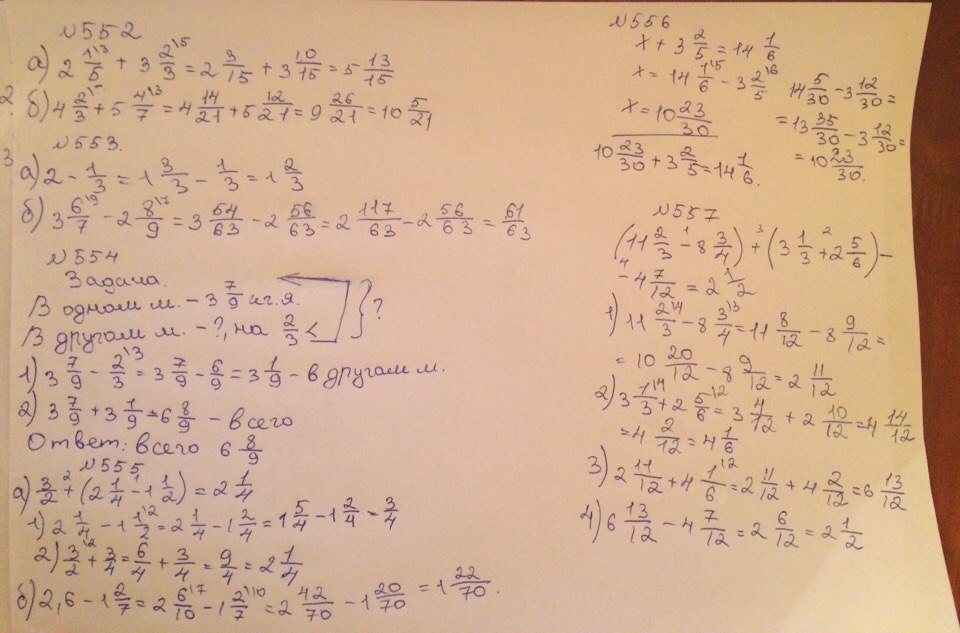 №552
а) 2 1\3/5 + 3 2\5/3 = 2 3/15 + 3 10/15 = 5 13/15
2. б) 4 2\7/3 + 5 4\3/7 = 4 14/21 + 5 12/21 = 9 26/21 = 10 5/21
№553.
3 а) 2 - 1/3 = 1 3/3 - 1/3 = 1 2/3
б) 3 6\9/7 - 2 8\7/9 = 3 54/63 - 2 56/63 = 2 117/63 - 2 56/63 = 61/63
№554
Задача.
В одном м. - 3 7/9 кг. я.
В другом м. - ?, на 2/3 < } ?
1) 3 7/9 - 2\3/3 = 3 7/9 - 6/9 = 3 1/9 - в другом м.
2) 3 7/9 + 3 1/9 = 6 8/9 - всего
Ответ: всего 6 8/9
№555
а) 3/2 +² (2 1/4 -¹ 1 1/2) = 2 1/4
1) 2 1/4 - 1 1\2/2 = 2 1/4 - 1 2/4 = 1 5/4 - 1 2/4 = 3/4
2) 3\2/2 + 3/4 = 6/4 + 3/4 = 9/4 = 2 1/4
б) 2,6 - 1 2/7 = 2 6\7/10 - 1 2\10/7 = 2 42/70 - 1 20/70 = 1 22/70.
№556
x + 3 2/5 = 14 1/6
x = 14 1\5/6 - 3 2\6/5
x = 10 23/30
10 23/30 + 3 2/5 = 14 1/6.
14 5/30 - 3 12/30 =
= 13 35/30 - 3 12/30 =
= 10 23/30.
№557
(11 2/3 -¹ 8 3/4) +³ (3 1/3 +² 2 5/6) -
-⁴ 4 7/12 = 2 1/2
1) 11 2\4/3 - 8 3\3/4 = 11 8/12 - 8 9/12 =
= 10 20/12 - 8 9/12 = 2 11/12
2) 3 1\4/3 + 2 5\2/6 = 3 4/12 + 2 10/12 = 4 14/12
= 4 2/12 = 4 1/6
3) 2 11/12 + 4 1\2/6 = 2 11/12 + 4 2/12 = 6 13/12
4) 6 13/12 - 4 7/12 = 2 6/12 = 2 1/2